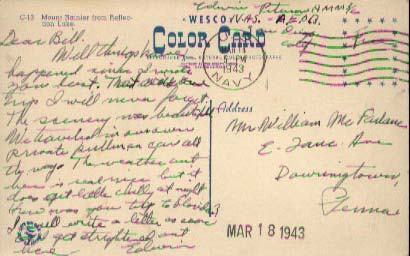 C-13 Mount Rainier from Reflection Lake.
Edwin Peterson
WESCO
U.S.
San Diego
Calif
COLOR CARD
1943
NAVY
Free
Dear Bill.
Well things have
happened since I wrote
you last. That was one
trip I will never forget.
The scenery was beautiful
We traveled in our own
private pullman car all
the way. The weather out
here is real nice but it
does get little chilly at night
How was you trip to Florida?
I will write a letter as soon
as I get straightened out
here
Edwin
Address
Mr William McFarlane
E. Lanc. Ave
Downingtown,
Penna
MAR 18 1943